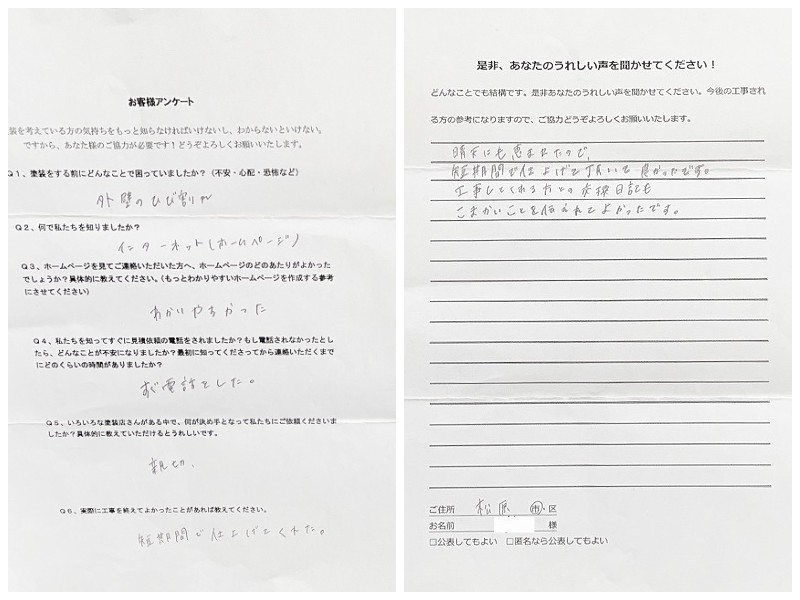 お客様アンケート
装を考えている方の気持ちをもっと知らなければいけないし、わからないといけない。
ですから、あなた様のご協力が必要です！どうぞよろしくお願いいたします。
Ｑ１、塗装をする前にどんなことで困っていましたか？（不安・心配・恐怖など）
外壁のひび割れ
Ｑ２、何で私たちを知りましたか？
インターネット(ホームページ)
Ｑ３、ホームページを見てご連絡いただいた方へ、ホームページのどのあたりがよかった
でしょうか？具体的に教えてください。（もっとわかりやすいホームページを作成する参考
にさせてください）
わかりやすかった
Ｑ４、私たちを知ってすぐに見積依頼の電話をされましたか？もし電話されなかったとし
たら、どんなことが不安になりましたか？最初に知ってくださってから連絡いただくまで
にどのくらいの時間がありましたか？
すぐ電話をした。
Ｑ５、いろいろな塗装店さんがある中で、何が決め手となって私たちにご依頼くださいま
したか？具体的に教えていただけるとうれしいです。
親切.
Ｑ６、実際に工事を終えてよかったことがあれば教えてください。
短期間で仕上げてくれた。
是非、あなたのうれしい声を聞かせてください！
どんなことでも結構です。是非あなたのうれしい声を聞かせてください。今後の工事され
る方の参考になりますので、ご協力どうぞよろしくお願いいたします。
晴天にも恵まれたので、
短期間で仕上げて頂いて良かったです。
工事してくれる方との交換日記も
こまかいことを伝えれてよかったです。
ご住所 松原 市・区
お名前 様
□公表してもよい □匿名なら公表してもよい